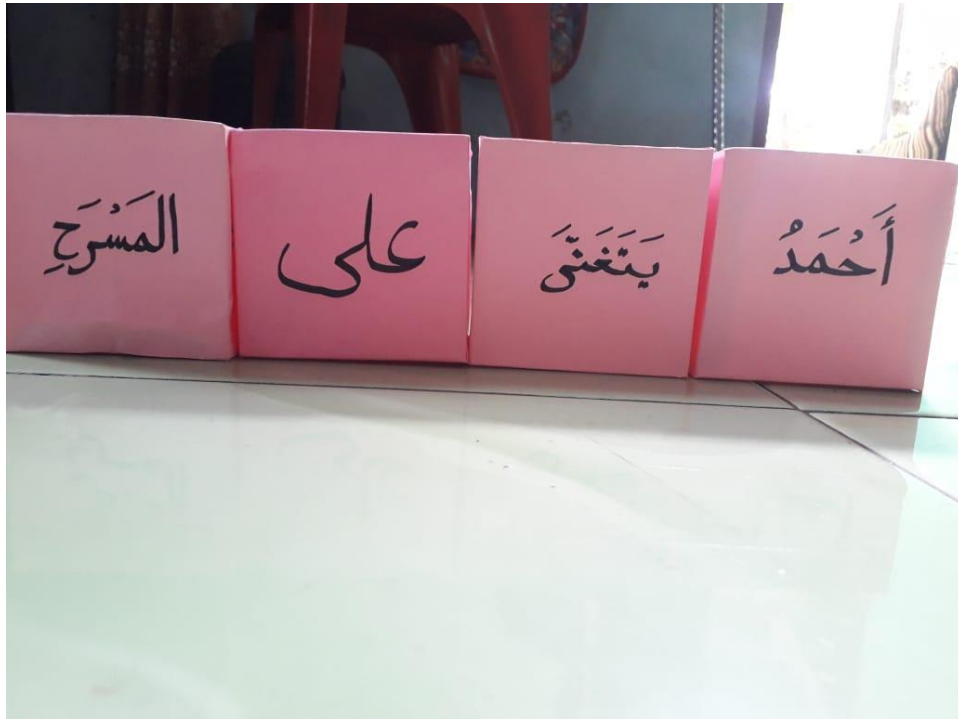 أَحْمَدُ يَتَغَنَّى عَلى المَسْرَحِ